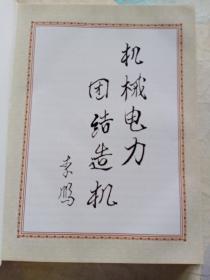 机械电力
团结造机
袁鹏